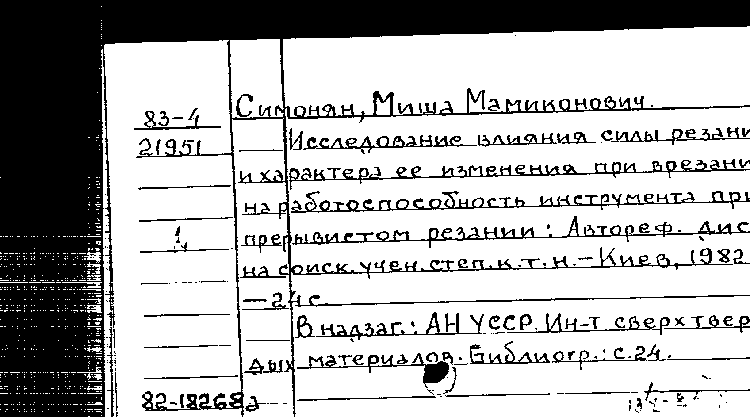 83-4
21951
1
Симонян, Миша Мамиконович.
Исследование влияния силы резани
и характера ее изменения при врезани
на работоспособность инструмента при
прерывистом резании: Автореф. дис
на соиск. учен. степ. к.т.н. – Киев, 1982
— 24 с.
В надзаг.: АН УССР. Ин-т сверхтвер
дых материалов. Библиогр.: с. 24.
82-18268а